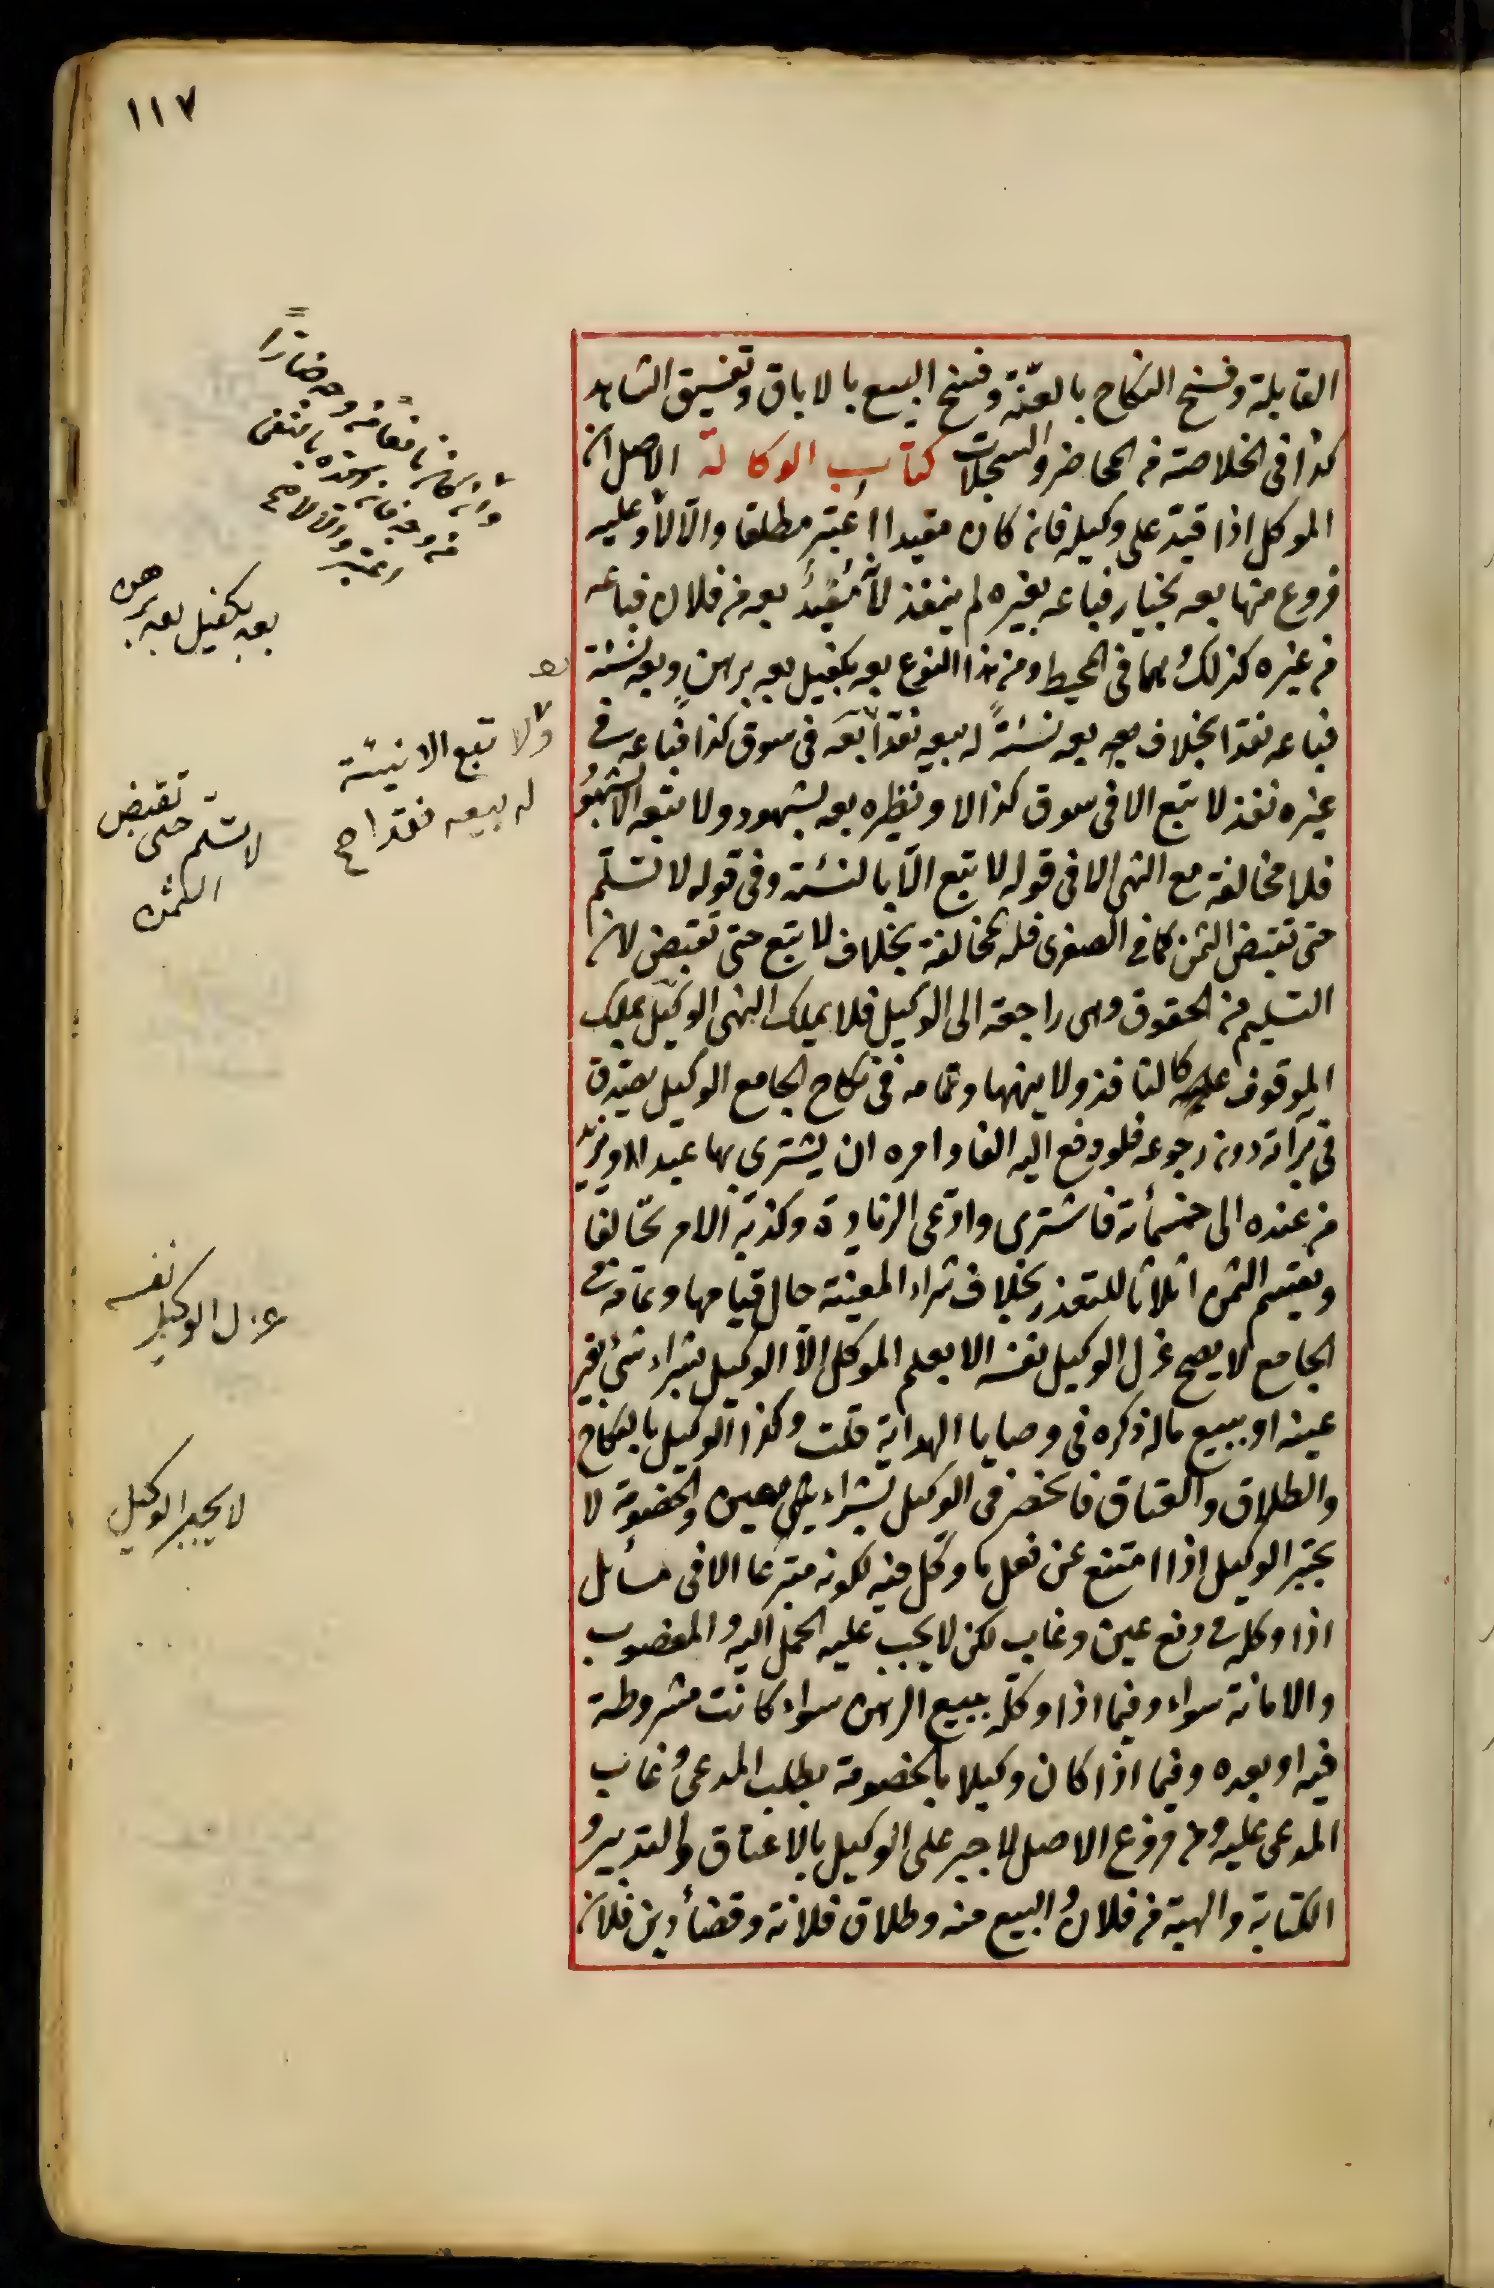 ١١٧
القابلة وفسخ النكاح بالعنّة وفسخ البيع بالاباق وتفسيق الشاهد
كذا فى الخلاصة من المحاضر والسجلات كتاب الوكالة الاصل ان
الموكل اذا قيد على وكيله فان كان مقيدا اعتبر مطلقا والّا لا وعليه
فروع منها بعه بخيار فباعه بغيره لم ينفذ لانه مقيد بعه من فلان فباعه
من غيره كذلك وهما فى المحيط ومن هذا النوع بعه بكفيل بعه برهن وبعه نسئة
فباعه نقدا بخلاف بعه نسئةً له بيعه نقدا بعه فى سوق كذا فباعه فى
غيره نفذ لا تبع الا فى سوق كذا لا ونظيره بعه بشهود ولا تبعه الا بشهود
فلا مخالفة مع النهى الا فى قوله لا تبع الّا بالنسئة وفى قوله لا تسلّم
حتى تقبض الثمن كما فى الصغرى فله مخالفة بخلاف لا تبع حتى تقبض لان
التسليم من الحقوق وهى راجعة الى الوكيل فلا يملك النهى الوكيل يملك
الموقوف عليه كالنافذ ولا ينهيها وتمامه فى نكاح الجامع الوكيل يصدق
فى براته دون رجوعه فلو دفع اليه الفا وامره ان يشترى بها عبدا ويزيد
من عنده الى خمسمائة فاشترى وادّعى الزيادة وكذبه الامر تحالفا
ويقسم الثمن اثلاثا للتعذر بخلاف شراء المعينة حال قيامها وتمامه فى
الجامع لا يصح عزل الوكيل نفسه الا بعلم الموكل الا الوكيل بشراء شئ بغير
عينه او ببيع ماله ذكره فى وصايا الهداية قلت وكذا الوكيل بالنكاح
والطلاق والعتاق فانحصر فى الوكيل بشراء شئ معين والخصومة لا
يجبر الوكيل اذا امتنع عن فعل ما وكّل فيه لكونه متبرعا الا فى مسائل
اذا وكله فى دفع عين وغاب لكن لا يجب عليه الحمل اليه والمغصوب
والامانة سواء وفيما اذا وكله ببيع الرهن سواء كانت مشروطة
فيه او بعده وفيما اذا كان وكيلا بالخصومة بطلب المدعى وغاب
المدعى عليه ومن فروع الاصل لا جبر على الوكيل بالاعتاق والتدبير و
الكتابة والهبة من فلان والبيع منه وطلاق فلانة وقضأ دين فلان
وان كان نافعا من وجه ضارّا
من وجه فان اكده بالنفى
اعتبر والّا لا صح
بعه بكفيل بعه برهن
ولا تبع الا نسئة
له بيعه نقدا صح
لا تسلّم حتى تقبض
الثمن
عزل الوكيل نفسه
لا يجبر الوكيل